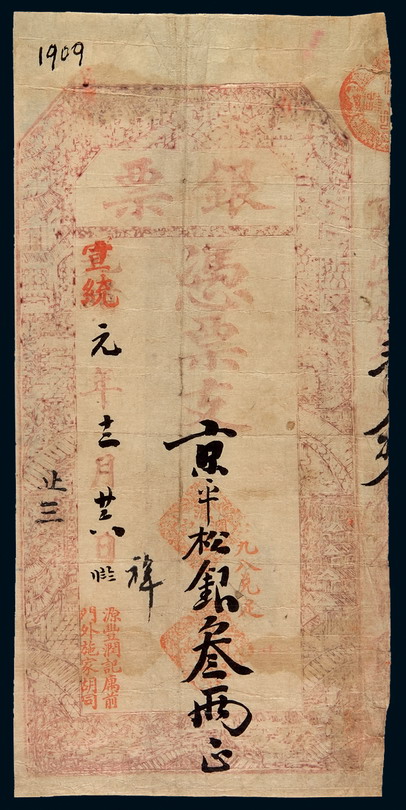 1909
銀票
憑票支
京平松銀叁兩正
九八兌足
宣統元年十二月廿八日
止三
源豐潤記寓前
門外施家胡同